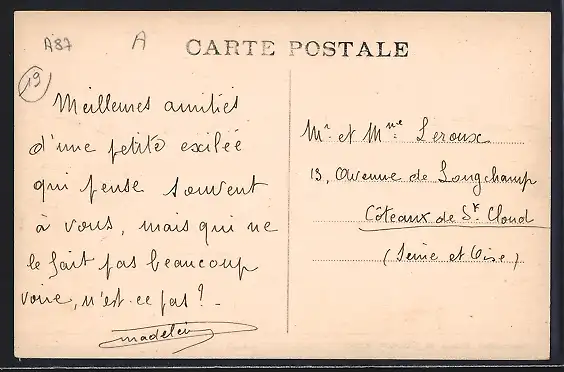 A87
A
CARTE POSTALE
19
Meilleures amitiés
d'une petite exilée
qui pense souvent
à vous, mais qui ne
le fait pas beaucoup
voir, n'est-ce pas ? -
Madelein
Mr et Mme Leroux
13, Avenue de Longchamp
Côteaux de St Cloud
(Seine et Oise)